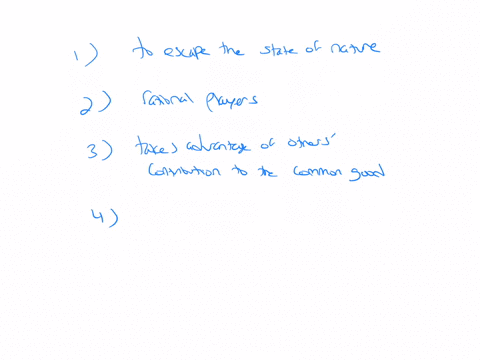 1) to escape the state of nature
2) rational players
3) takes advantage of others'
contribution to the common good
4)